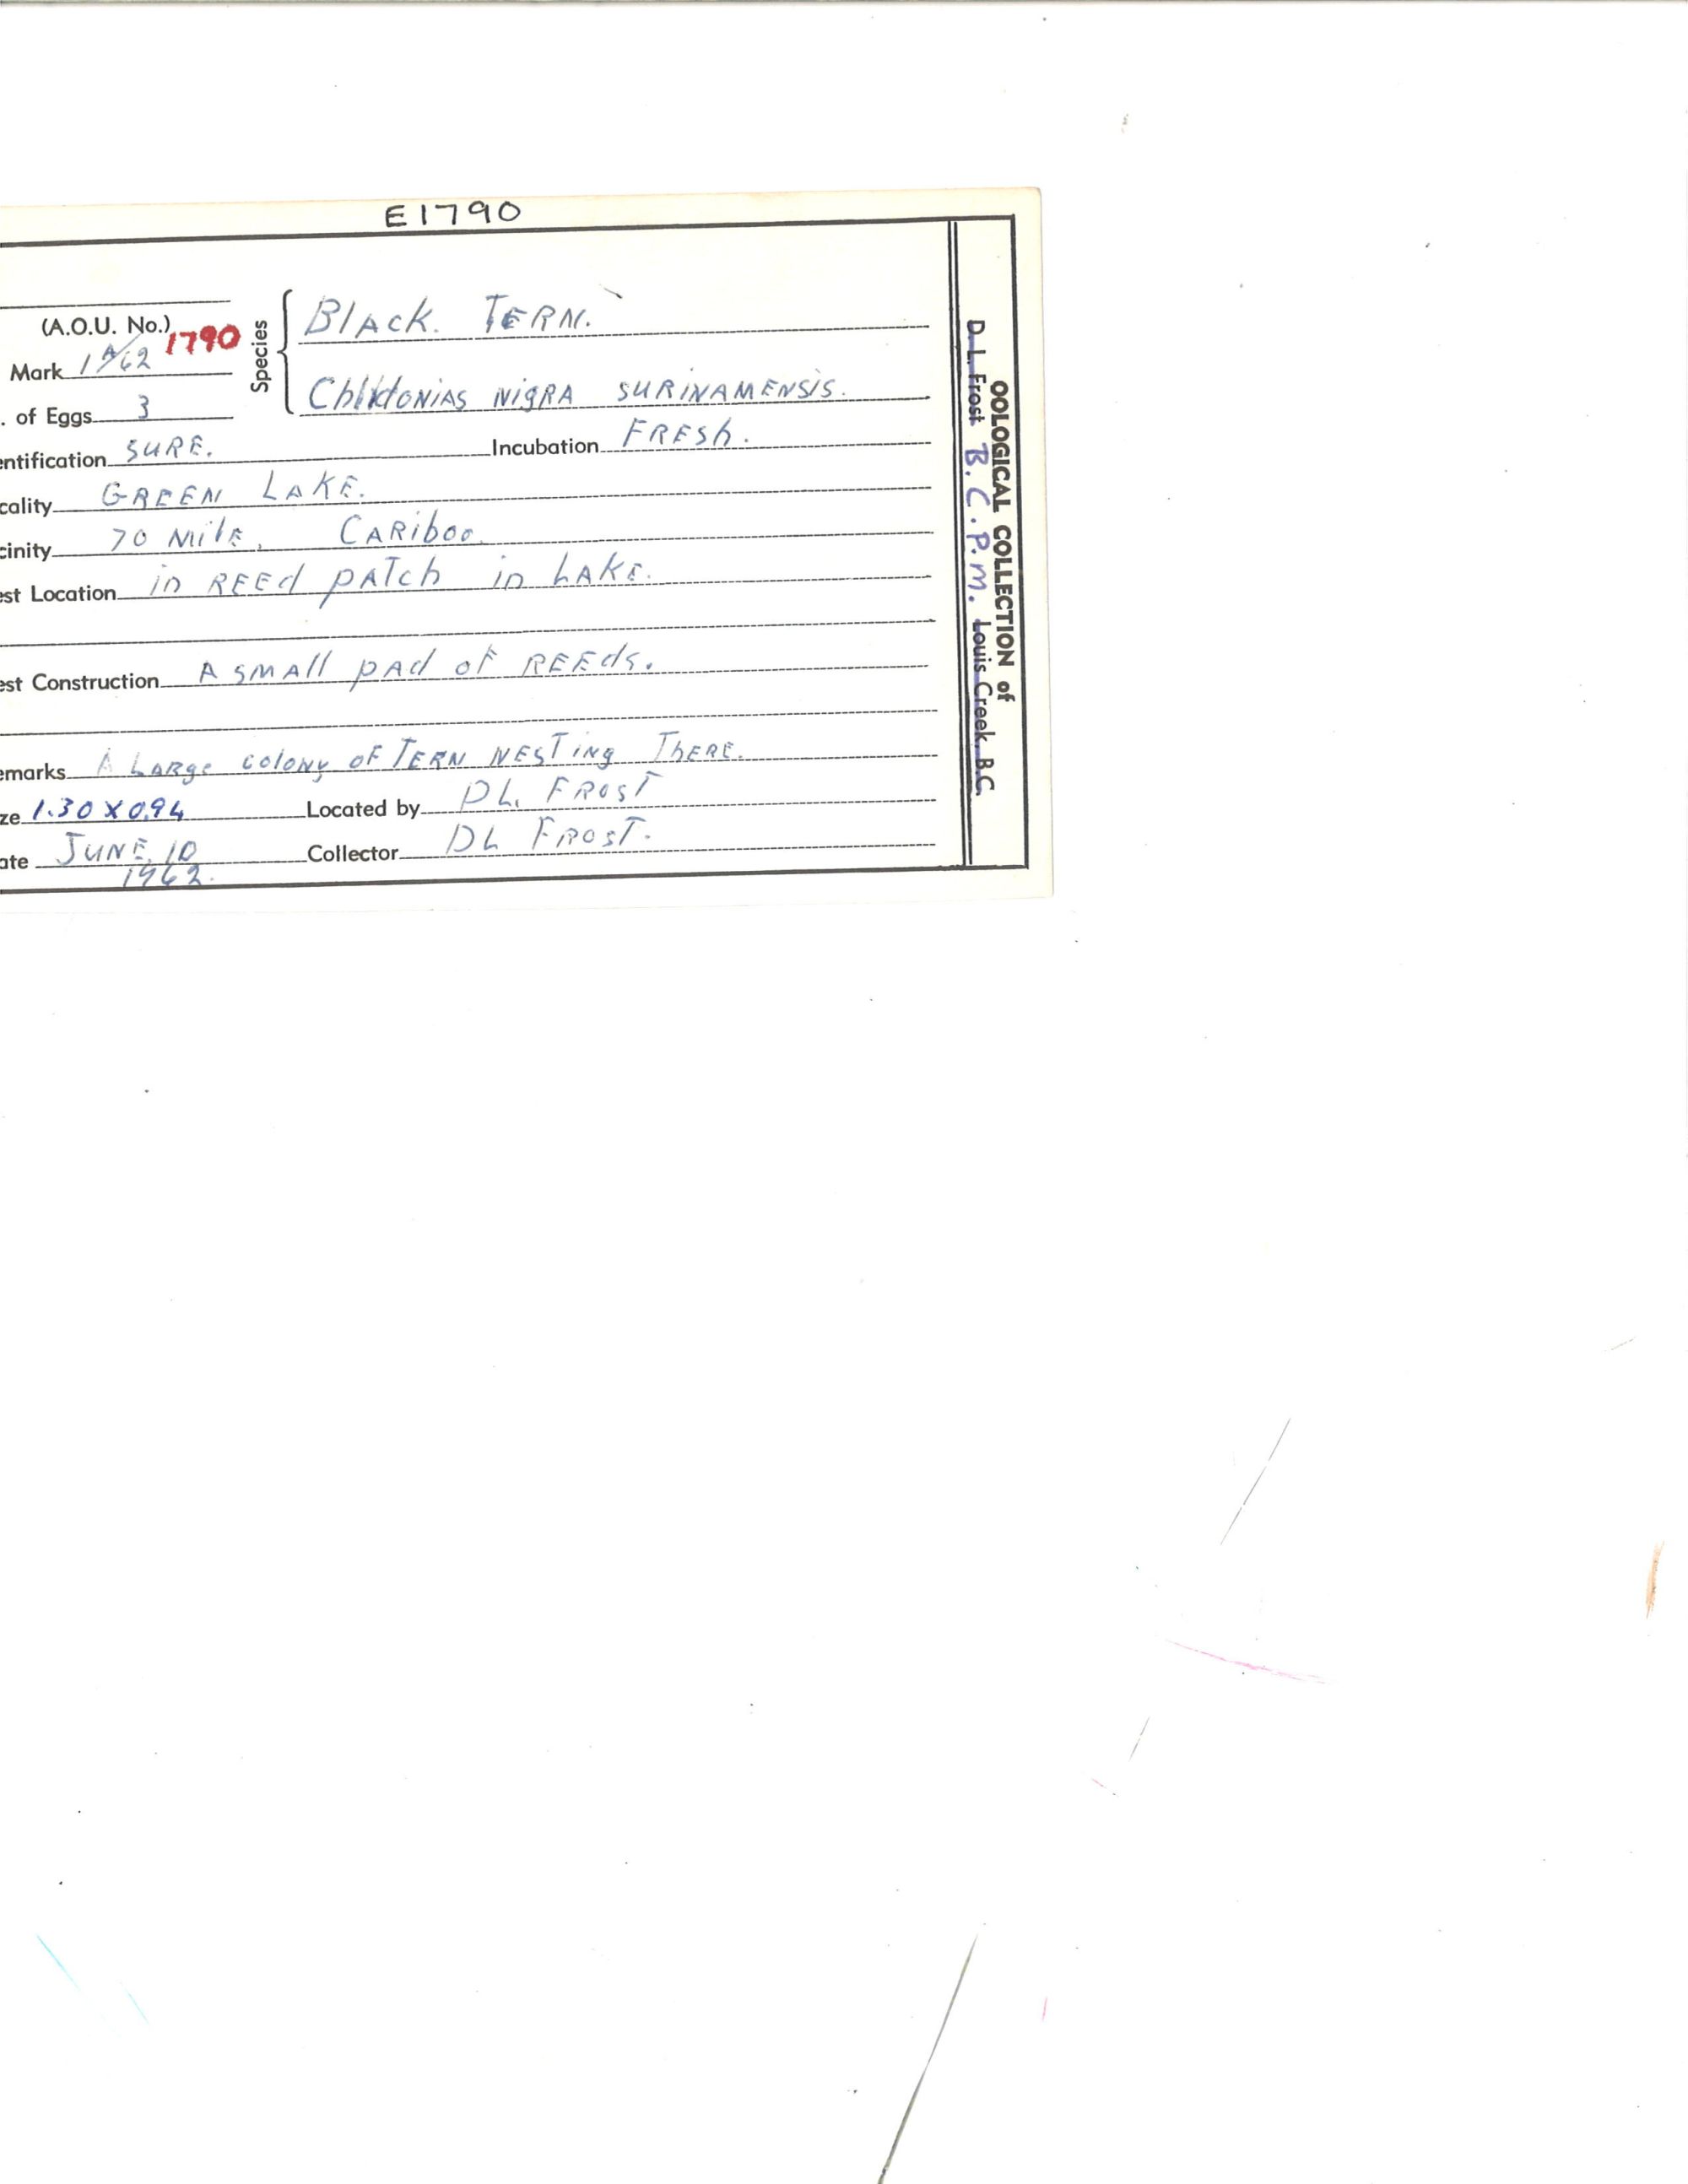 E1790
(A.O.U. No.) 1790
Mark 1 A/62
Species { Black. TERN.
Chlidonias nigra surinamensis.
. of Eggs 3
entification SURE. Incubation FRESh.
cality GREEN LAKE.
cinity 70 Mile, CARiboo.
est Location in REEd pATch in LAKE.
est Construction A sMAll pAd of REEds.
emarks A LARge colony of TERN NESTing ThERE.
ze 1.30 X 0.94 Located by DL. FROST
ate JUNE. 10 Collector DL FROST.
1962.
OOLOGICAL COLLECTION of
D. L. Frost B.C.P.M. Louis Creek, B.C.